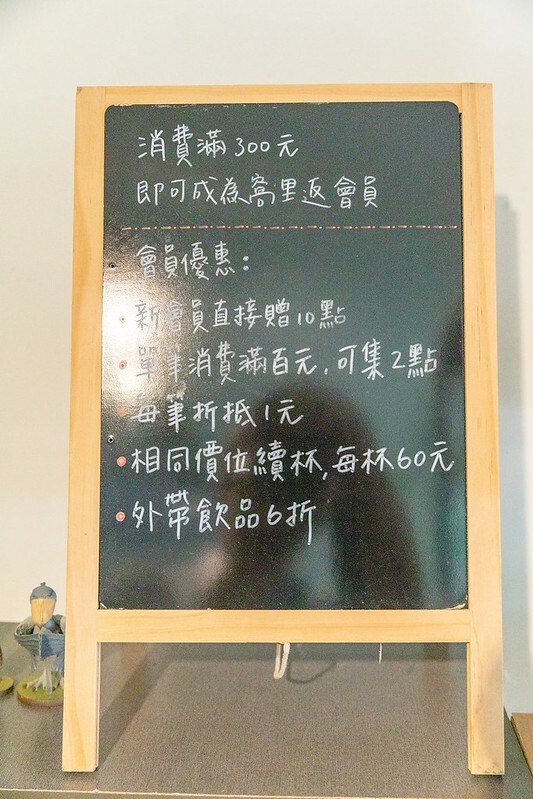 消費滿300元
即可成為窩里返會員
會員優惠:
新會員直接贈10點
單筆消費滿百元,可集2點
每筆折抵1元
相同價位續杯,每杯60元
外帶飲品6折